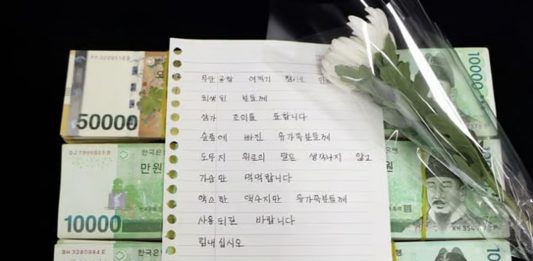 무안공항 여객기 참사로
희생된 분들께
삼가 조의를 표합니다
슬픔에 빠진 유가족분들께
도무지 위로의 말도 생각나지 않고
가슴만 먹먹합니다
약소한 액수지만 유가족분들께
사용되면 바랍니다
힘내십시오
50000
한국은행
만원
10000
한국은
만원
10000